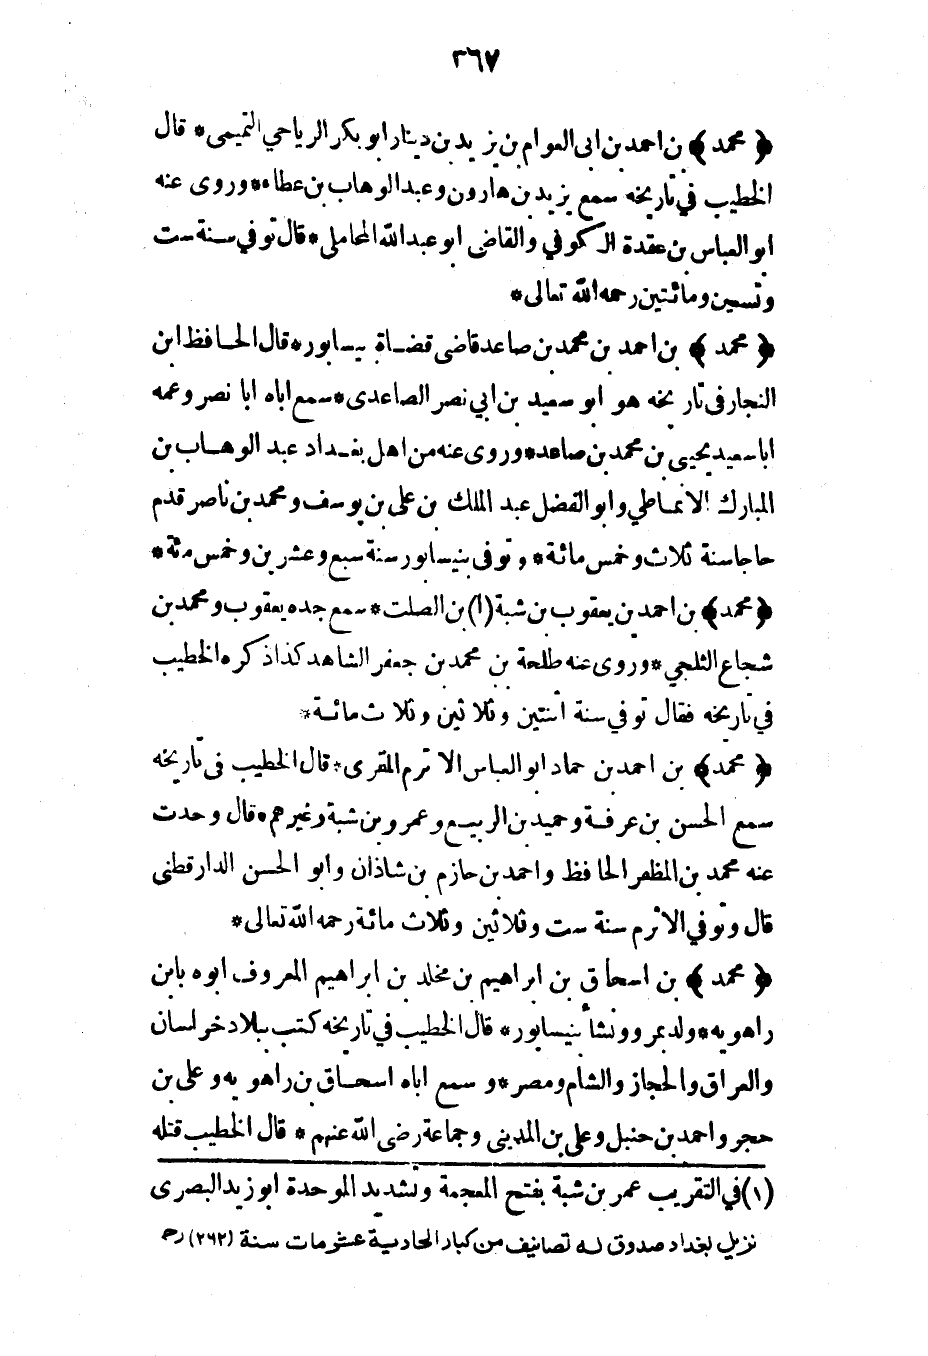 ٣٦٧
﴿ محمد ﴾ بن احمد بن ابى العوام بن يزيد بن دينار ابو بكر الرياحي التميمى * قال
الخطيب في تاريخه سمع يزيد بن هارون وعبد الوهاب بن عطاء * وروى عنه
ابو العباس بن عقدة الكوفي والقاضى ابو عبد الله المحاملى * قال توفي سنة ست
وتسعين ومائتين رحمه الله تعالى *
﴿ محمد ﴾ بن احمد بن محمد بن صاعد قاضى قضاة نيسابور * قال الحافظ ابن
النجار فى تاريخه هو ابو سعيد بن ابي نصر الصاعدى * سمع اباه ابا نصر وعمه
اباسعيد يحيى بن محمد بن صاعد * وروى عنه من اهل بغداد عبد الوهاب بن
المبارك الانماطي وابو الفضل عبد الملك بن على بن يوسف ومحمد بن ناصر قدم
حاجا سنة ثلاث وخمس مائة * وتوفى بنيسابور سنة سبع وعشرين وخمس مئة *
﴿ محمد ﴾ بن احمد بن يعقوب بن شبة (١) بن الصلت * سمع جده يعقوب ومحمد بن
شجاع الثلجي * وروى عنه طلحة بن محمد بن جعفر الشاهد كذا ذكره الخطيب
في تاريخه فقال توفي سنة اثنتين وثلاثين وثلاث مائة *
﴿ محمد ﴾ بن احمد بن حماد ابو العباس الاثرم المقرى * قال الخطيب فى تاريخه
سمع الحسن بن عرفة وحميد بن الربيع وعمرو بن شبة وغيرهم * قال وحدث
عنه محمد بن المظفر الحافظ واحمد بن حازم بن شاذان وابو الحسن الدارقطنى
قال وتوفي الاثرم سنة ست وثلاثين وثلاث مائة رحمه الله تعالى *
﴿ محمد ﴾ بن اسحاق بن ابراهيم بن مخلد بن ابراهيم المعروف ابوه بابن
راهويه * ولد بمرو ونشأ بنيسابور * قال الخطيب في تاريخه كتب ببلاد خراسان
والعراق والحجاز والشام ومصر * وسمع اباه اسحاق بن راهويه وعلى بن
حجر واحمد بن حنبل وعلى بن المدينى وجماعة رضى الله عنهم * قال الخطيب قتله
(١) في التقريب عمر بن شبة بفتح المعجمة وتشديد الموحدة ابو زيد البصرى
نزيل بغداد صدوق له تصانيف من كبار الحادية عشر مات سنة (٢٦٢) رح